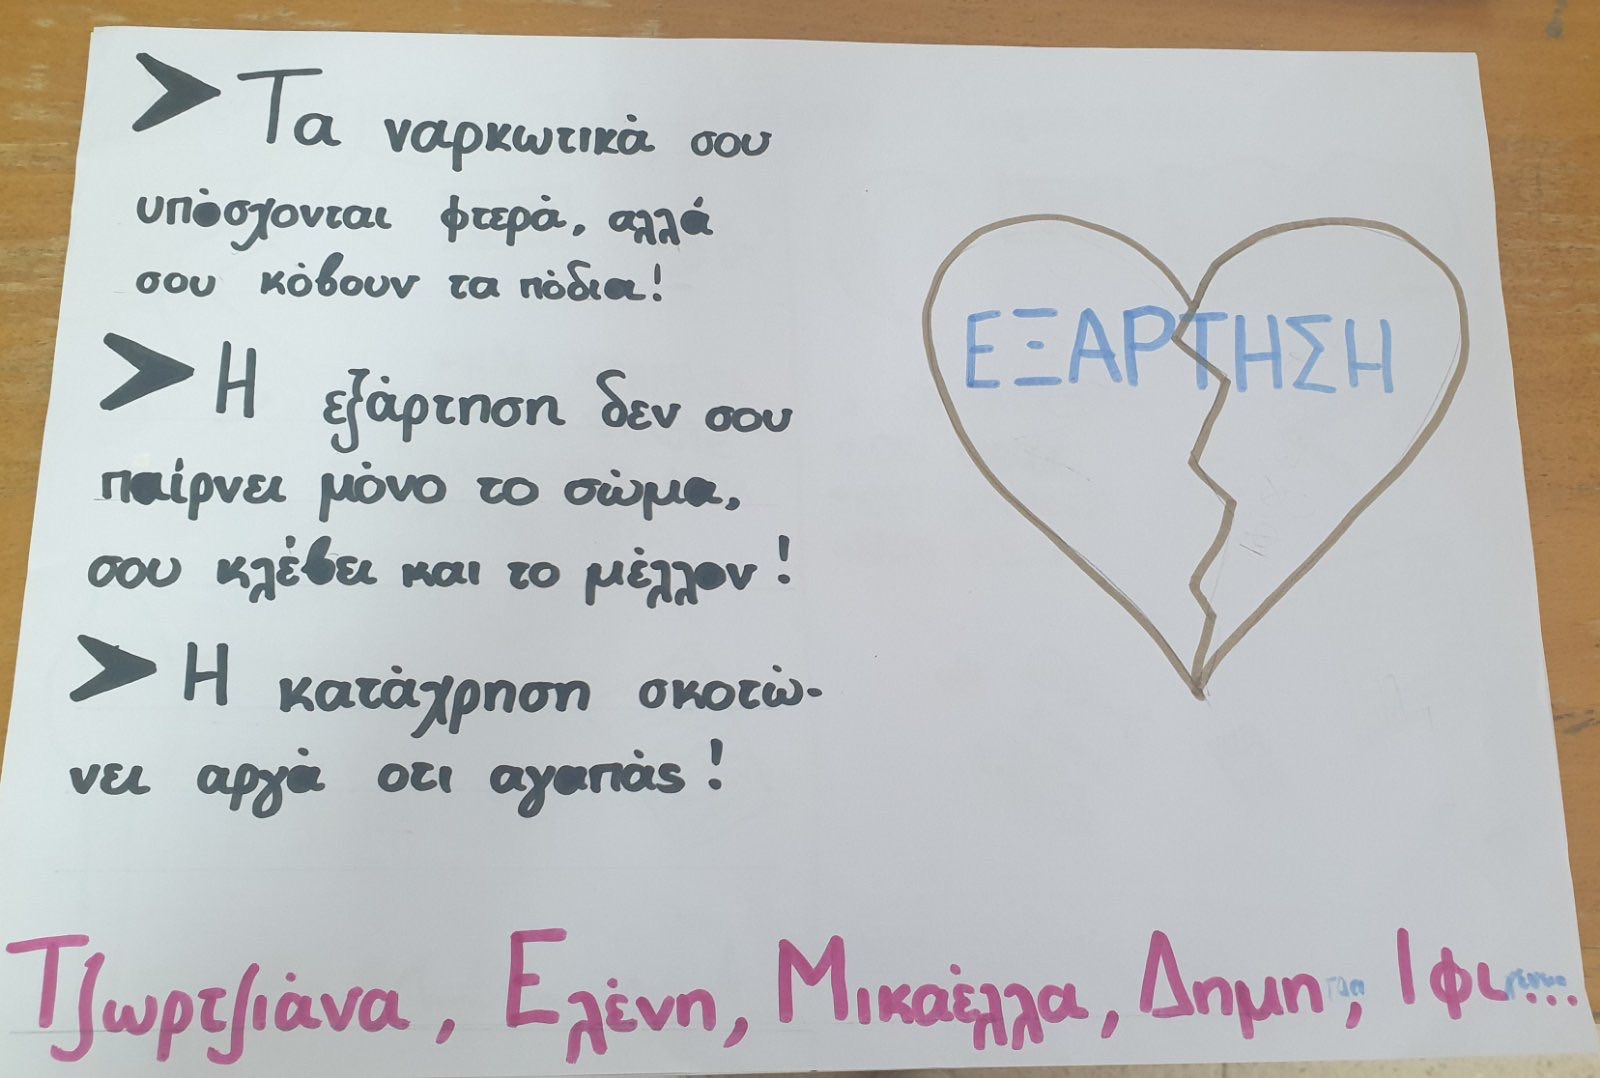 > Τα ναρκωτικά σου
υπόσχονται φτερά, αλλά
σου κόβουν τα πόδια!
> Η εξάρτηση δεν σου
παίρνει μόνο το σώμα,
σου κλέβει και το μέλλον!
> Η κατάχρηση σκοτώ-
νει αργά οτι αγαπάς!
ΕΞΑΡΤΗΣΗ
Τζωρτζιάνα, Ελένη, Μικαέλλα, Δημη, Ιφι...